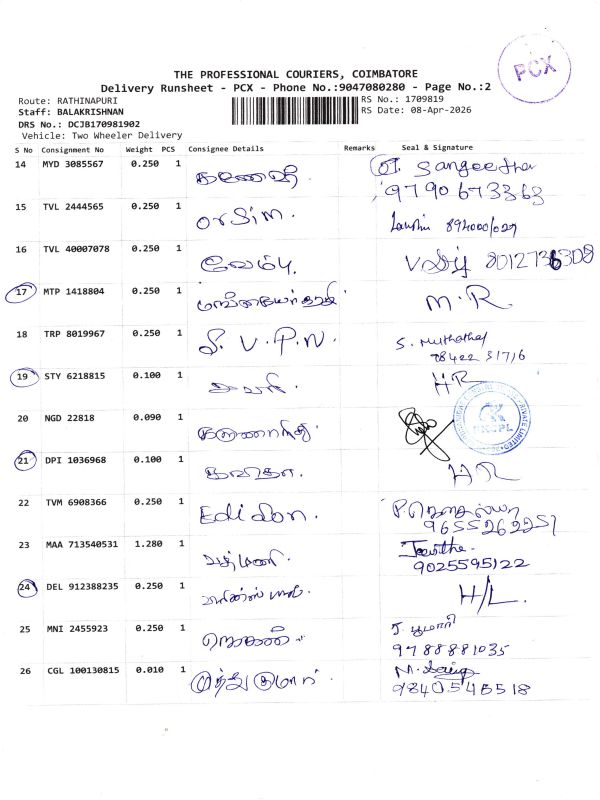 PCX
THE PROFESSIONAL COURIERS, COIMBATORE
Delivery Runsheet - PCX - Phone No.:9047080280 - Page No.:2
Route: RATHINAPURI
RS No.: 1709819
Staff: BALAKRISHNAN
RS Date: 08-Apr-2026
DRS No.: DCJB170981902
Vehicle: Two Wheeler Delivery
S No Consignment No Weight PCS Consignee Details Remarks Seal & Signature
14 MYD 3085567 0.250 1 Sangeetha
9790673363
15 TVL 2444565 0.250 1 orsim.
16 TVL 40007078 0.250 1 வேம்பு.
17 MTP 1418804 0.250 1 M.R.
18 TRP 8019967 0.250 1 S.V.P.N. S. Muthathal
19 STY 6218815 0.100 1 HR
20 NGD 22818 0.090 1
21 DPI 1036968 0.100 1 கவிதா. HR
22 TVM 6908366 0.250 1 Edidon.
9655262251
23 MAA 713540531 1.280 1
9025595122
24 DEL 912388235 0.250 1 H/L.
25 MNI 2455923 0.250 1 J. பூமாரி
9788881035
26 CGL 100130815 0.010 1 முத்துகுமார்
9840546518